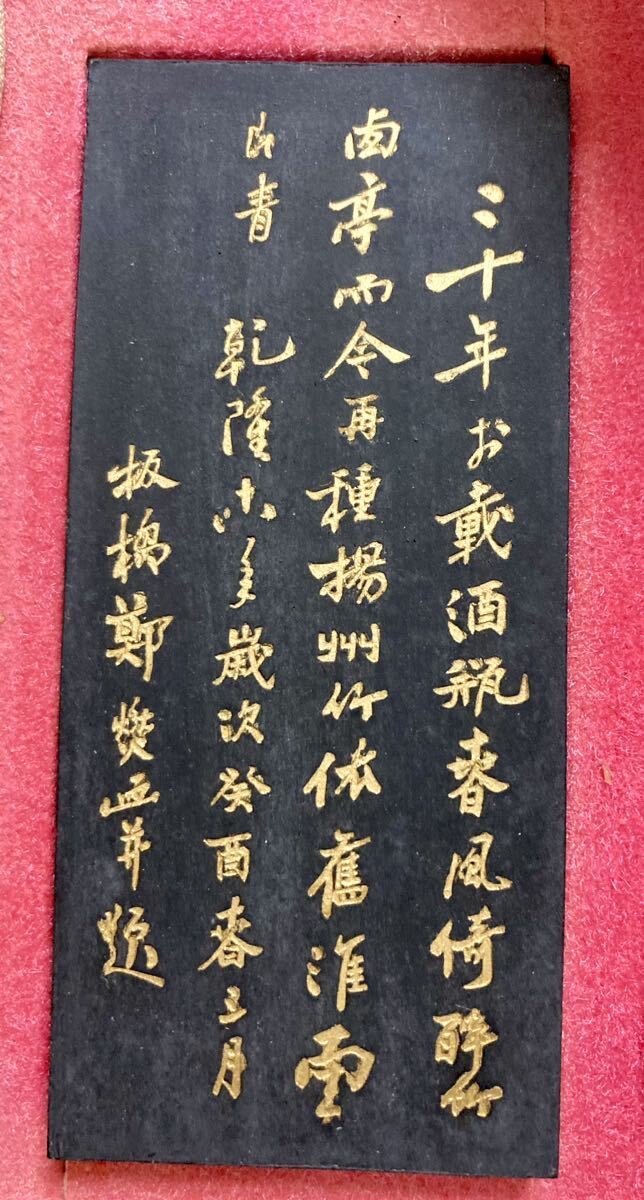 二十年前載酒瓶春風倚醉竹
西亭而今再種揚州竹依舊淮南
片青 乾隆十八年歲次癸酉春三月
板橋鄭燮画并題